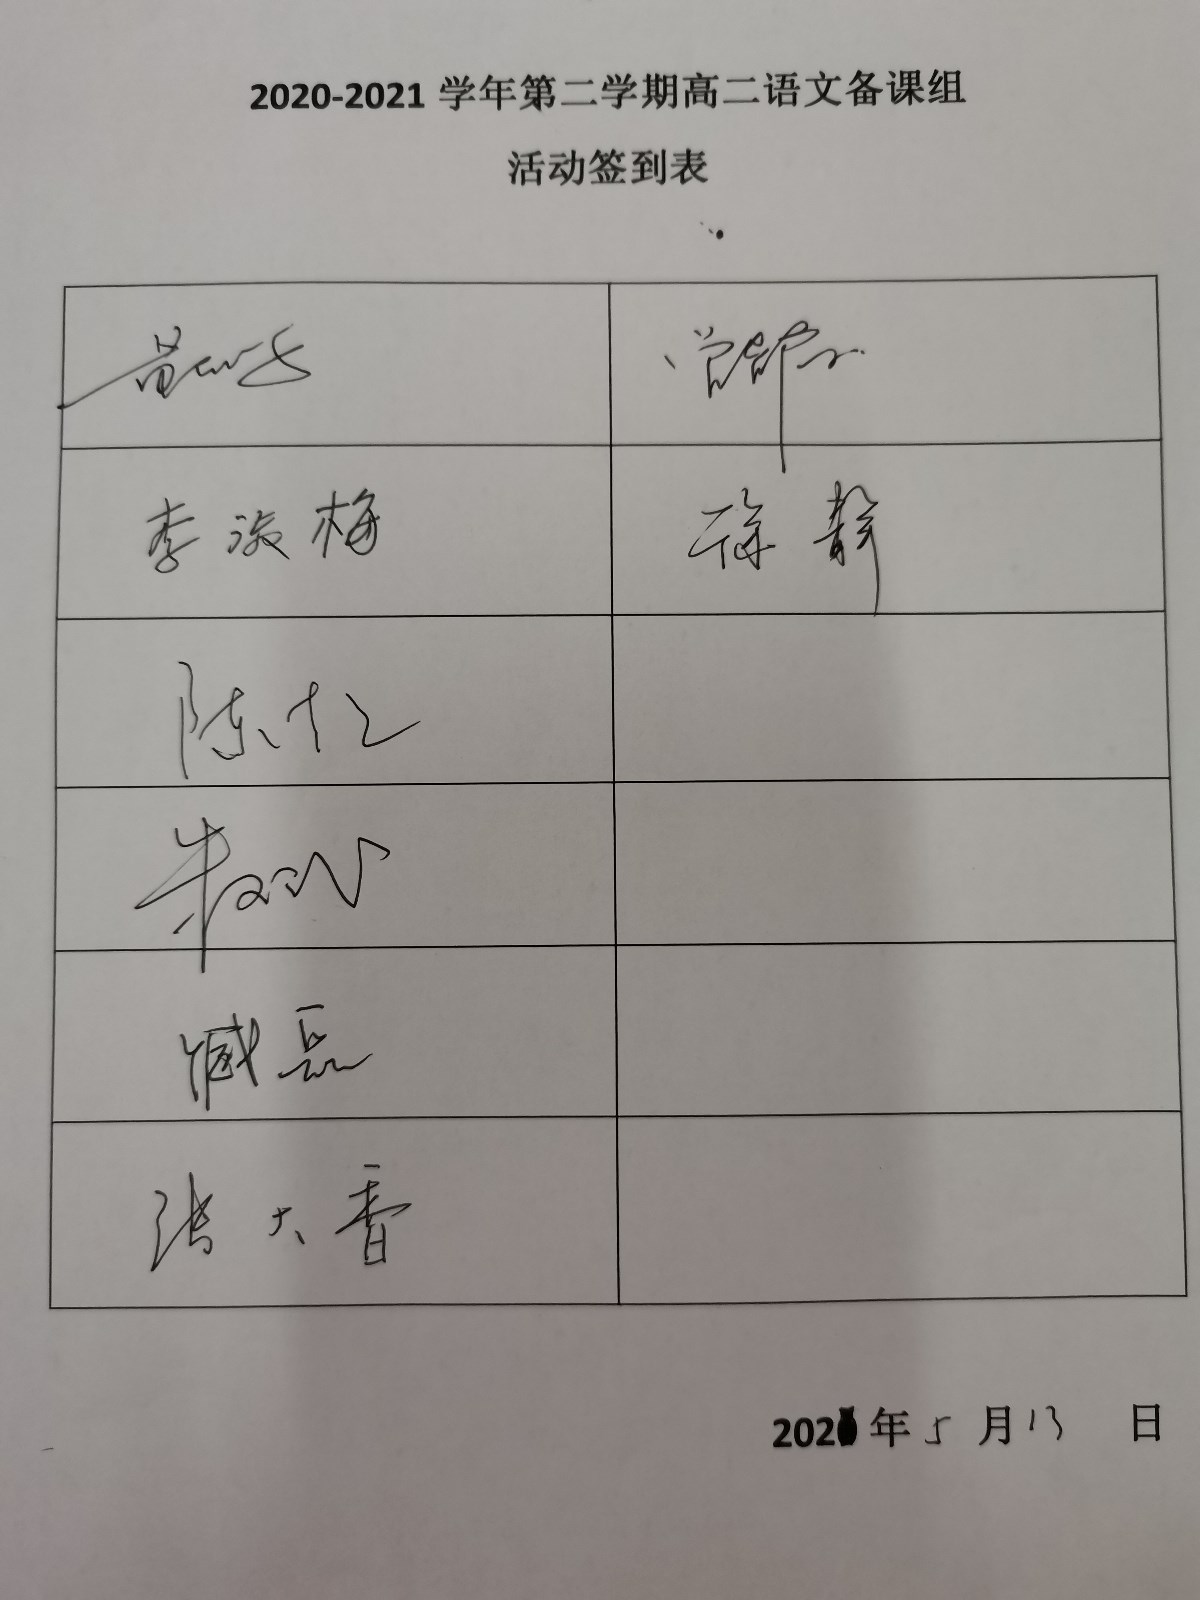 2020-2021 学年第二学期高二语文备课组
活动签到表
李淑梅 徐静
陈忆
朱
臧磊
张大香
202 年 5 月 13 日